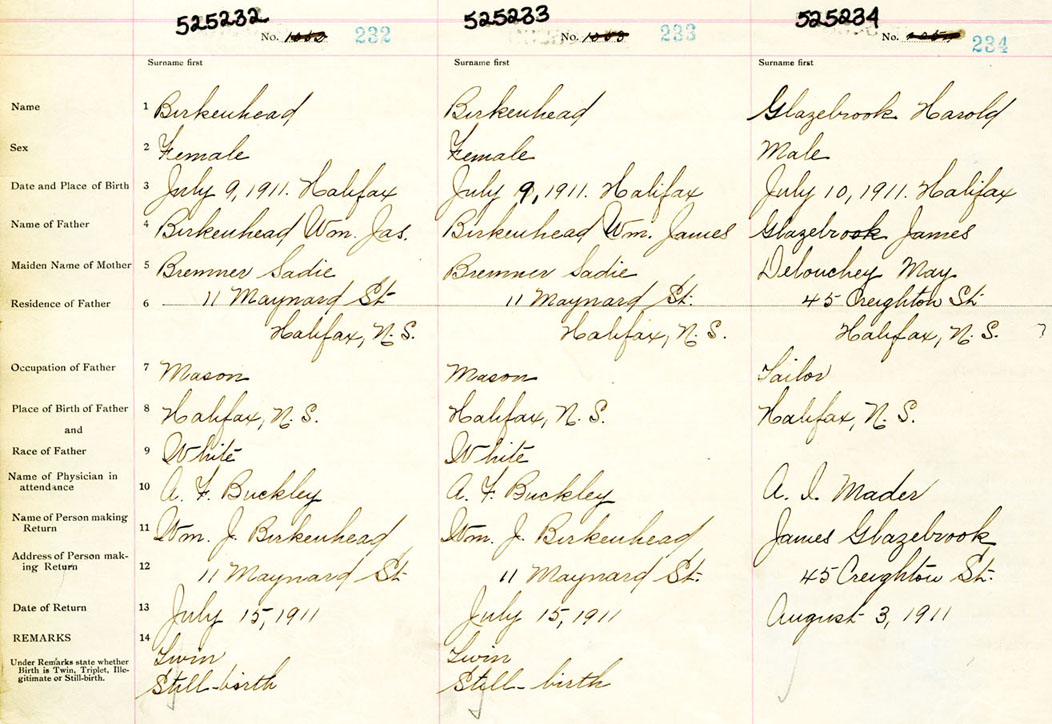 525232 525233 525234
No. 232 No. 1053 233 No. 234
Surname first Surname first Surname first
Name 1 Birkenhead Birkenhead Glazebrook Harold
Sex 2 Female Female Male
Date and Place of Birth 3 July 9, 1911. Halifax July 9, 1911. Halifax July 10, 1911. Halifax
Name of Father 4 Birkenhead Wm. Jas. Birkenhead Wm. James Glazebrook James
Maiden Name of Mother 5 Bremner Sadie Bremner Sadie Delouchey May
Residence of Father 6 11 Maynard St. 11 Maynard St. 45 Creighton St.
Halifax, N.S. Halifax, N.S. Halifax, N.S. ?
Occupation of Father 7 Mason Mason Tailor
Place of Birth of Father 8 Halifax, N.S. Halifax, N.S. Halifax, N.S.
and
Race of Father 9 White White
Name of Physician in
attendance 10 A. F. Buckley A. F. Buckley A. I. Mader
Name of Person making
Return 11 Wm. J. Birkenhead Wm. J. Birkenhead James Glazebrook
Address of Person mak-
ing Return 12 11 Maynard St. 11 Maynard St. 45 Creighton St.
Date of Return 13 July 15, 1911 July 15, 1911 August 3, 1911
REMARKS 14
Under Remarks state whether Twin Twin
Birth is Twin, Triplet, Ille-
gitimate or Still-birth. Still-birth Still-birth